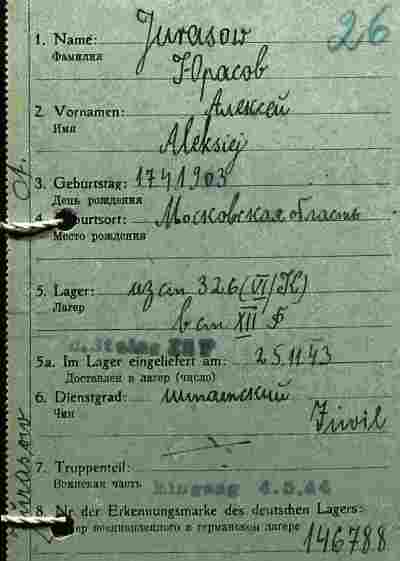 26
1. Name: Jurasow
Фамилия Юрасов
2. Vornamen: Алексей
Имя Aleksiej
3. Geburtstag: 17 4 1903
День рождения
4. Geburtsort: Московская область
Место рождения
5. Lager: из ст 326 (VI/K)
Лагер в ст XII F
5a. Im Lager eingeliefert am: 25.11.43
Доставлен в лагер (число)
6. Dienstgrad: штатский
Чин Ziwil
7. Truppenteil:
Воинская часть Eingang 4.5.44
8. Nr. der Erkennungsmarke des deutschen Lagers:
военнопленного в германском лагере 146788
Jurasow A.